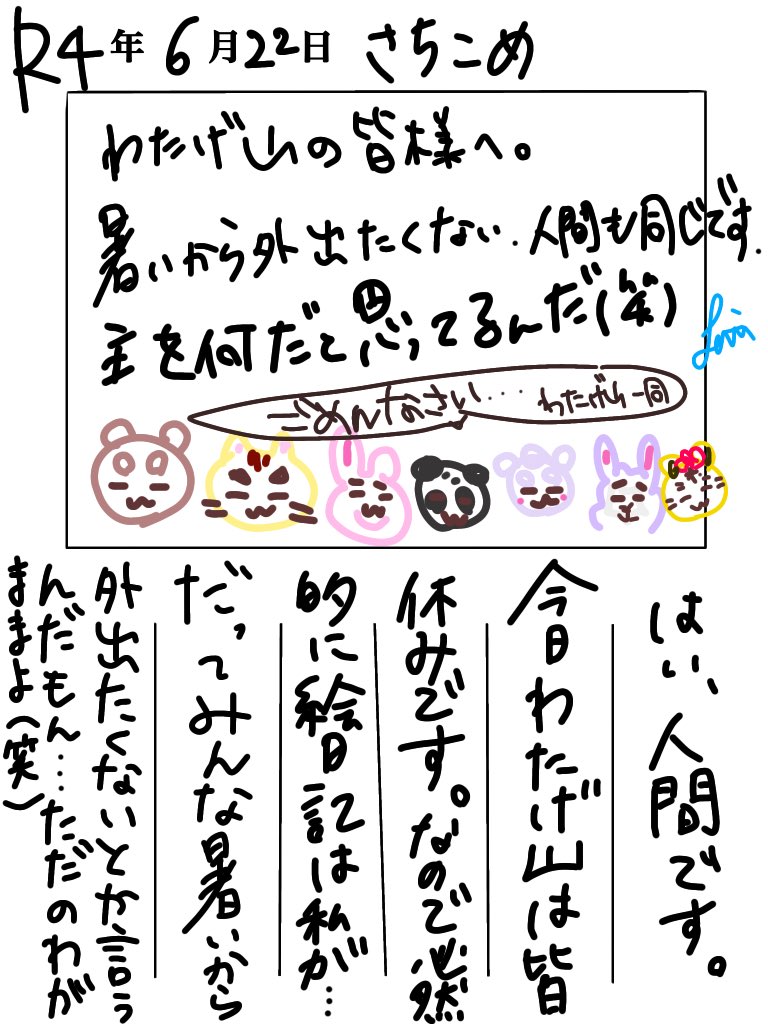 R4年6月22日 さちこめ
わたげ山の皆様へ。
暑いから外出たくない、人間も同じです。
主を何だと思ってるんだ(笑)
ごめんなさい… わたげ山一同
はい、人間です。
今日わたげ山は皆
休みです。なので必然
的に絵日記は私が…
だってみんな暑いから
外出たくないとか言う
んだもん…ただのわが
ままよ(笑)